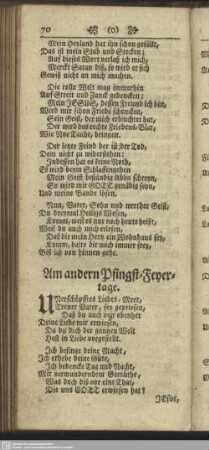 70 (o)
Mein Heyland hat ihn schon gefällt,
Das ist mein Stab und Stecken;
Auf dieses Wort verlaß ich mich,
Merckt Satan diß, so wird er sich
Gewiß nicht an mich machen.
Die tolle Welt mag immerhin
Auf Streit und Zanck gedencken;
Mein JESUS, dessen Freund ich bin,
Wird mir schon Friede schencken,
Sein Geist, der mich erleuchtet hat,
Der muß das rechte Friedens-Blat,
Wie Noä Taube, bringen.
Der letzte Feind der ist der Tod,
Dem nicht zu widerstehen:
Indessen hat es keine Noth,
Es wird beym Schlaffengehen
Mein Geist beständig Abba schreyn,
So wird mir GOTT gnädig seyn,
Und meine Bande lösen.
Nun, Vater, Sohn und werther Geist,
Du dreymal heiligs Wesen,
Komm, weil es nur noch heute heist,
Weil du auch mich erlesen,
Daß die mein Hertz ein Wohnhaus sey,
Komm, halte dir mich immer frey,
Biß ich von hinnen gehe.
Am andern Pfingst-Feyer-
tage.
UNerschöpftes Liebes-Meer,
Treuer Vater, sey gepriesen,
Daß du auch itzt obenher
Deine Liebe mir erwiesen,
Da du dich der gantzen Welt
Hast in Liebe vorgestellt.
Ich besinge deine Macht,
Ich erhebe deine Güte,
Ich bedencke Tag und Nacht,
Mit verwunderndem Gemüthe,
Was doch diß vor eine That,
Die uns GOTT erwiesen hat!
JEsus,